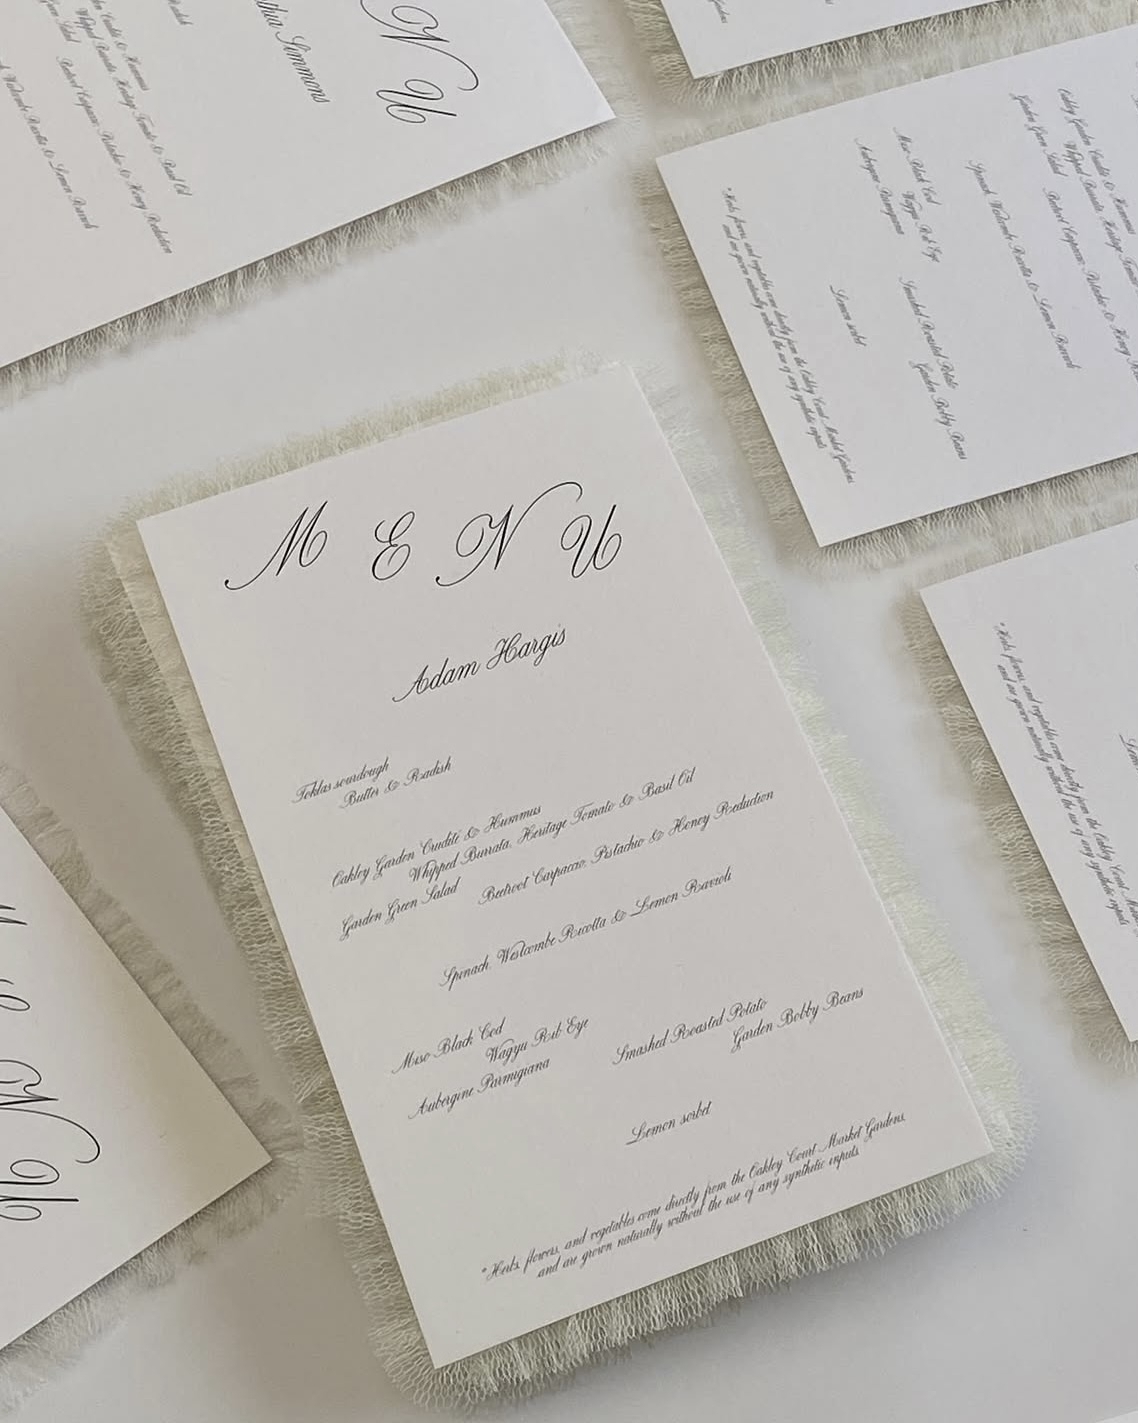 M E N U
Adam Hargis
Toklas sourdough
Butter & Radish
Oakley Garden Crudité & Hummus
Whipped Burrata, Heritage Tomato & Basil Oil
Garden Green Salad
Beetroot Carpaccio, Pistachio & Honey Reduction
Spinach, Westcombe Ricotta & Lemon Ravioli
Miso Black Cod
Wagyu Rib Eye
Aubergine Parmigiana
Smashed Roasted Potato
Garden Bobby Beans
Lemon sorbet
*Herbs, flowers, and vegetables come directly from the Oakley Court Market Gardens,
and are grown naturally without the use of any synthetic inputs.
N U
Simmons
& Hummus
Whipped Burrata, Heritage Tomato & Basil Oil
Salad
Beetroot Carpaccio, Pistachio & Honey Reduction
Westcombe Ricotta & Lemon Ravioli
Oakley Garden Crudité & Hummus
Whipped Burrata, Heritage
Garden Green Salad
Beetroot Carpaccio, Pistachio & Honey
Spinach, Westcombe Ricotta & Lemon Ravioli
Miso Black Cod
Wagyu Rib Eye
Aubergine Parmigiana
Smashed Roasted Potato
Garden Bobby Beans
Lemon sorbet
*Herbs, flowers, and vegetables come directly from the Oakley Court Market Gardens,
and are grown naturally without the use of any synthetic inputs.
*Herbs, flowers, and vegetables come directly from the Oakley Court
and are grown naturally without the use of any synthetic inputs.
N U